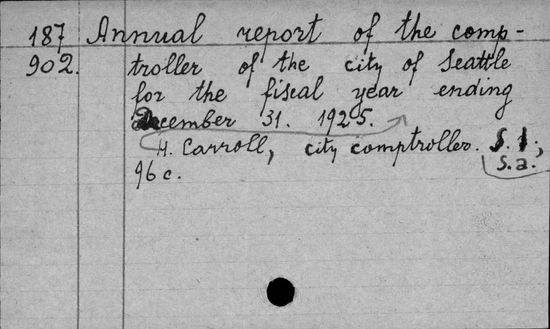 187 Annual report of the comp-
902. troller of the city of Seattle
for the fiscal year ending
December 31. 1925.
H. Carroll, city comptroller. S. l.,
s.a.
96 c.